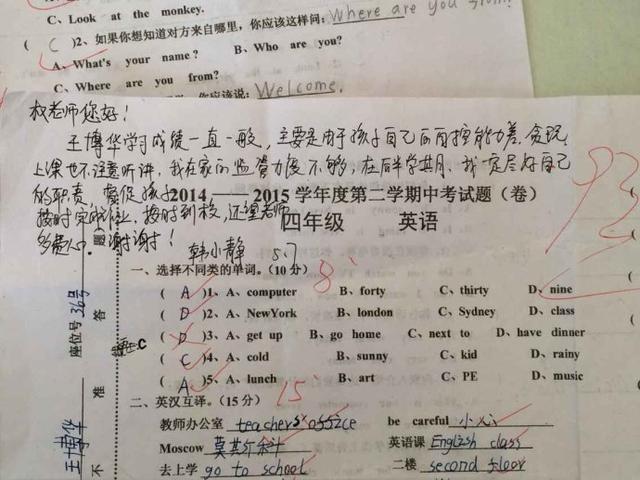 C、Look at the monkey.
( C )2、如果你想知道对方来自哪里，你应该这样问: Where are you from?
A、What's your name? B、Who are you?
C、Where are you from? 你应该说: Welcome.
权老师您好!
王博华学习成绩一直一般，主要是由于孩子自己的自控能力差，贪玩
上课也不注意听讲，我在家的监督力度不够，在后半学期，我一定尽好自己
的职责，督促孩子
按时完成作业，按时到校，还望老师
多费心，谢谢!
韩小静 5.7
92
2014——2015学年度第二学期中考试题（卷）
四年级 英语
一、选择不同类的单词。（10分） 8
( A )1、A、computer B、forty C、thirty D、nine
( D )2、A、NewYork B、london C、Sydney D、class
( D )3、A、get up B、go home C、next to D、have dinner
( C )4、A、cold B、sunny C、kid D、rainy
( A )5、A、lunch B、art C、PE D、music
二、英汉互译。（15分） 15
教师办公室 teachers' office be careful 小心
Moscow 莫斯科 英语课 English class
去上学 go to school 二楼 second floor
座位号 36号
王博华
题
答
准
不